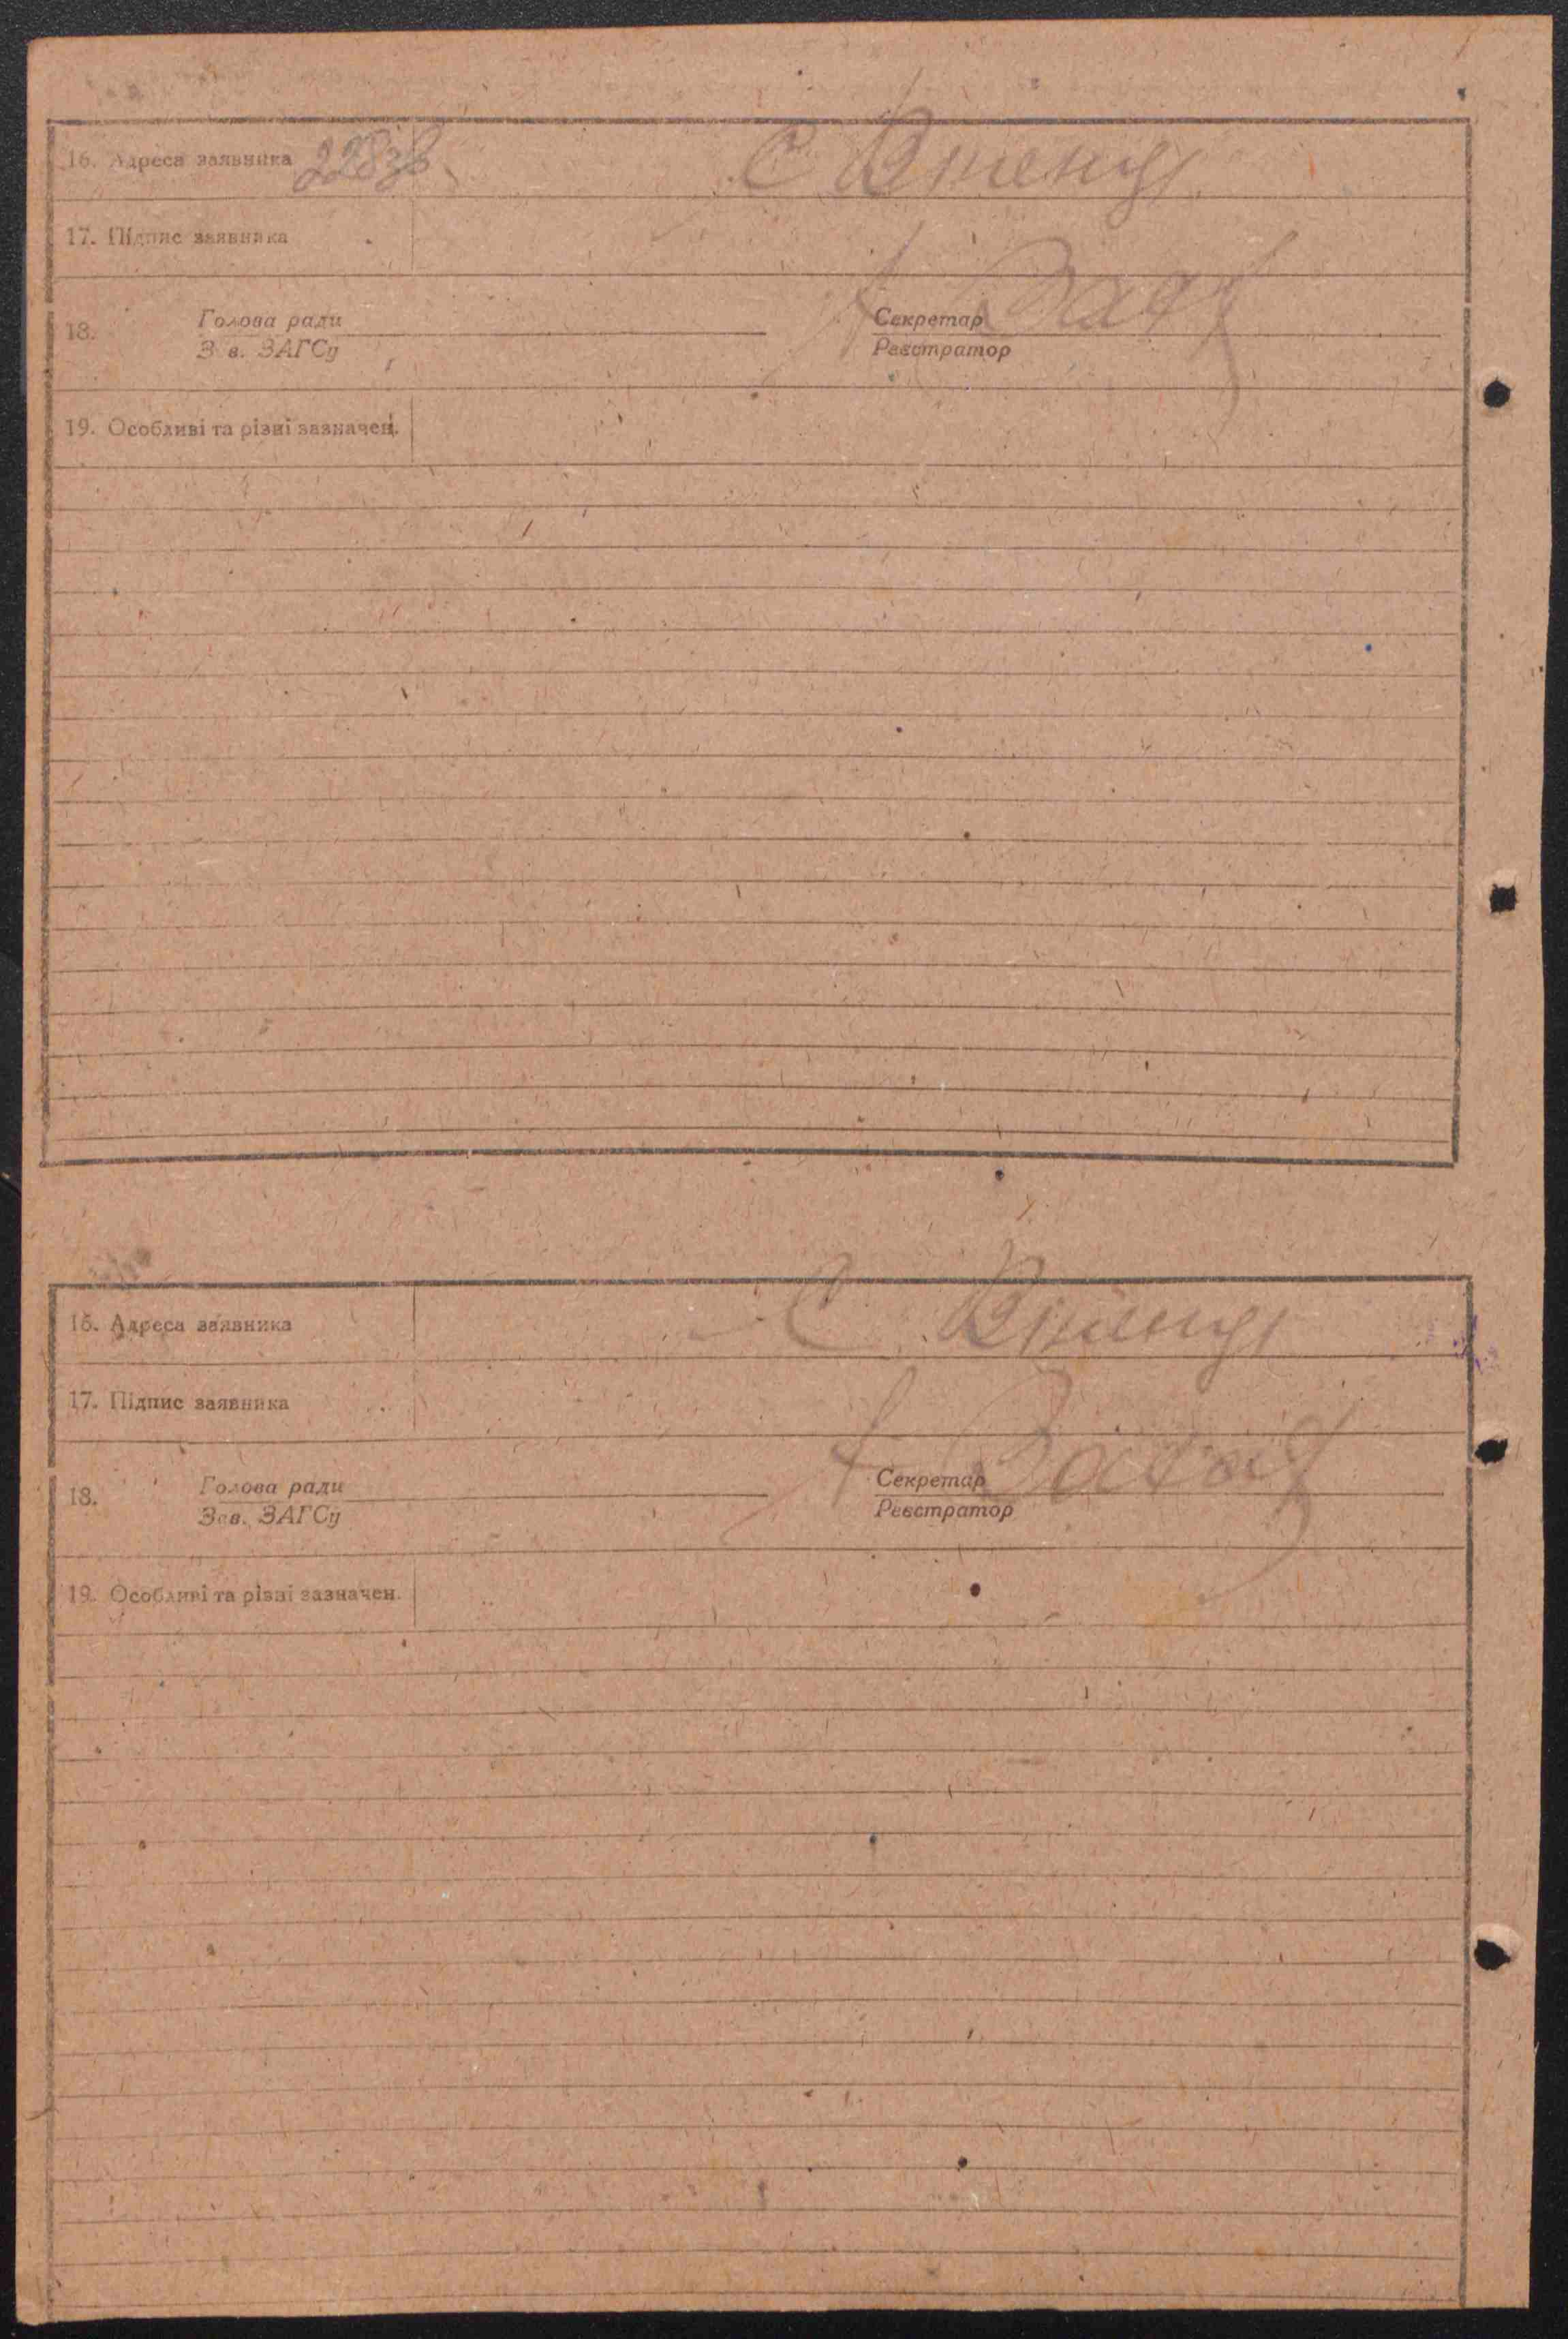 16. Адреса заявника
17. Підпис заявника
18. Голова ради Секретар
Зав. ЗАГСу Реєстратор
19. Особливі та різні зазначен.
16. Адреса заявника С
17. Підпис заявника
18. Голова ради Секретар
Зав. ЗАГСу Реєстратор
19. Особливі та різні зазначен.